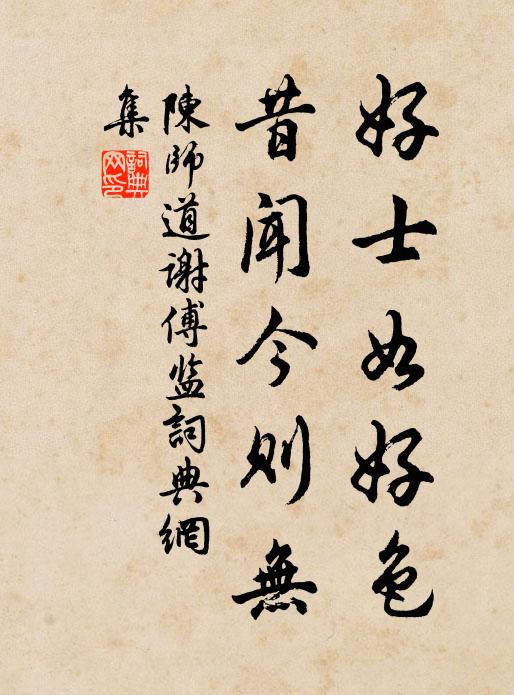 好士如好色
昔聞今則無
陳師道謝傅监詞典網
集
詞典網印